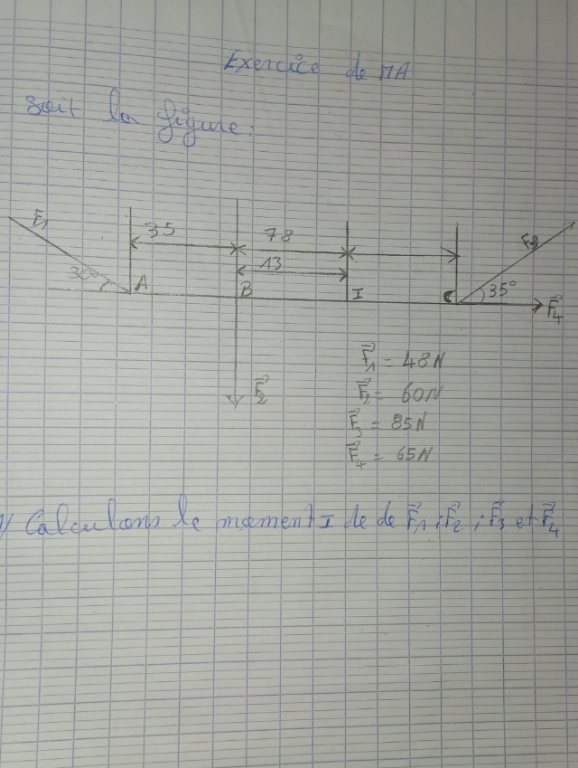 Exercice de MA
soit la figure.
F1
35
78
F3
13
30°
A
B
I
C
35°
F⃗4
F⃗2
F⃗1 = 48N
F⃗2 = 60N
F⃗3 = 85N
F⃗4 = 65N
1/ Calculons le moment I de de F⃗1 ; F⃗2 ; F⃗3 et F⃗4